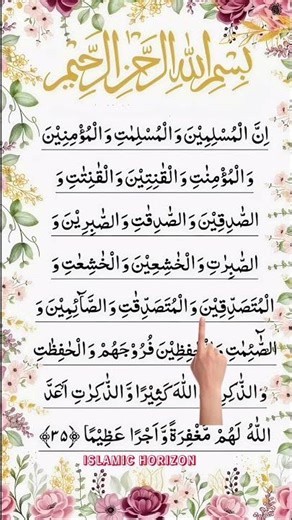 بِسْمِ اللّٰهِ الرَّحْمٰنِ الرَّحِيْمِ
اِنَّ الْمُسْلِمِيْنَ وَ الْمُسْلِمٰتِ وَ الْمُؤْمِنِيْنَ
وَ الْمُؤْمِنٰتِ وَ الْقٰنِتِيْنَ وَ الْقٰنِتٰتِ وَ
الصّٰدِقِيْنَ وَ الصّٰدِقٰتِ وَ الصّٰبِرِيْنَ وَ
الصّٰبِرٰتِ وَ الْخٰشِعِيْنَ وَ الْخٰشِعٰتِ وَ
الْمُتَصَدِّقِيْنَ وَ الْمُتَصَدِّقٰتِ وَ الصَّآئِمِيْنَ وَ
الصّٰٓئِمٰتِ وَ فُرُوْجَهُمْ وَ الْحٰفِظٰتِ
وَ اللّٰهَ كَثِيْرًا وَّ الذّٰكِرٰتِ اَعَدَّ
اللّٰهُ لَهُمْ مَّغْفِرَةً وَّ اَجْرًا عَظِيْمًا ﴿۳۵﴾
ISLAMIC HORIZON